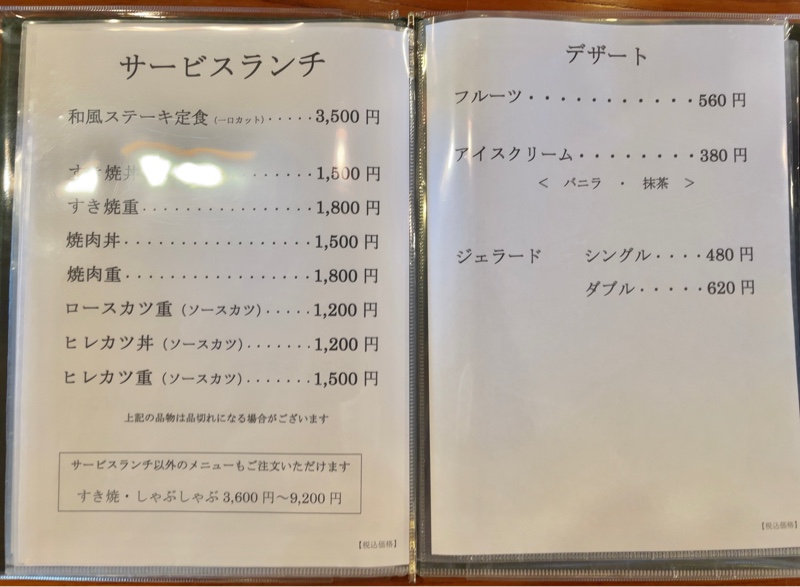 サービスランチ
和風ステーキ定食（一口カット）・・・・・3,500円
すき焼丼・・・・・・1,500円
すき焼重・・・・・・・・・・・・・・・・1,800円
焼肉丼・・・・・・・・・・・・・・・・・1,500円
焼肉重・・・・・・・・・・・・・・・・・1,800円
ロースカツ重（ソースカツ）・・・・・1,200円
ヒレカツ丼（ソースカツ）・・・・・・・1,200円
ヒレカツ重（ソースカツ）・・・・・・・1,500円
上記の品物は品切れになる場合がございます
サービスランチ以外のメニューもご注文いただけます
すき焼・しゃぶしゃぶ3,600円〜9,200円
【税込価格】
デザート
フルーツ・・・・・・・・・・・・560円
アイスクリーム・・・・・・・・380円
＜　バニラ　・　抹茶　＞
ジェラード　シングル・・・・480円
ダブル・・・・・620円
【税込価格】